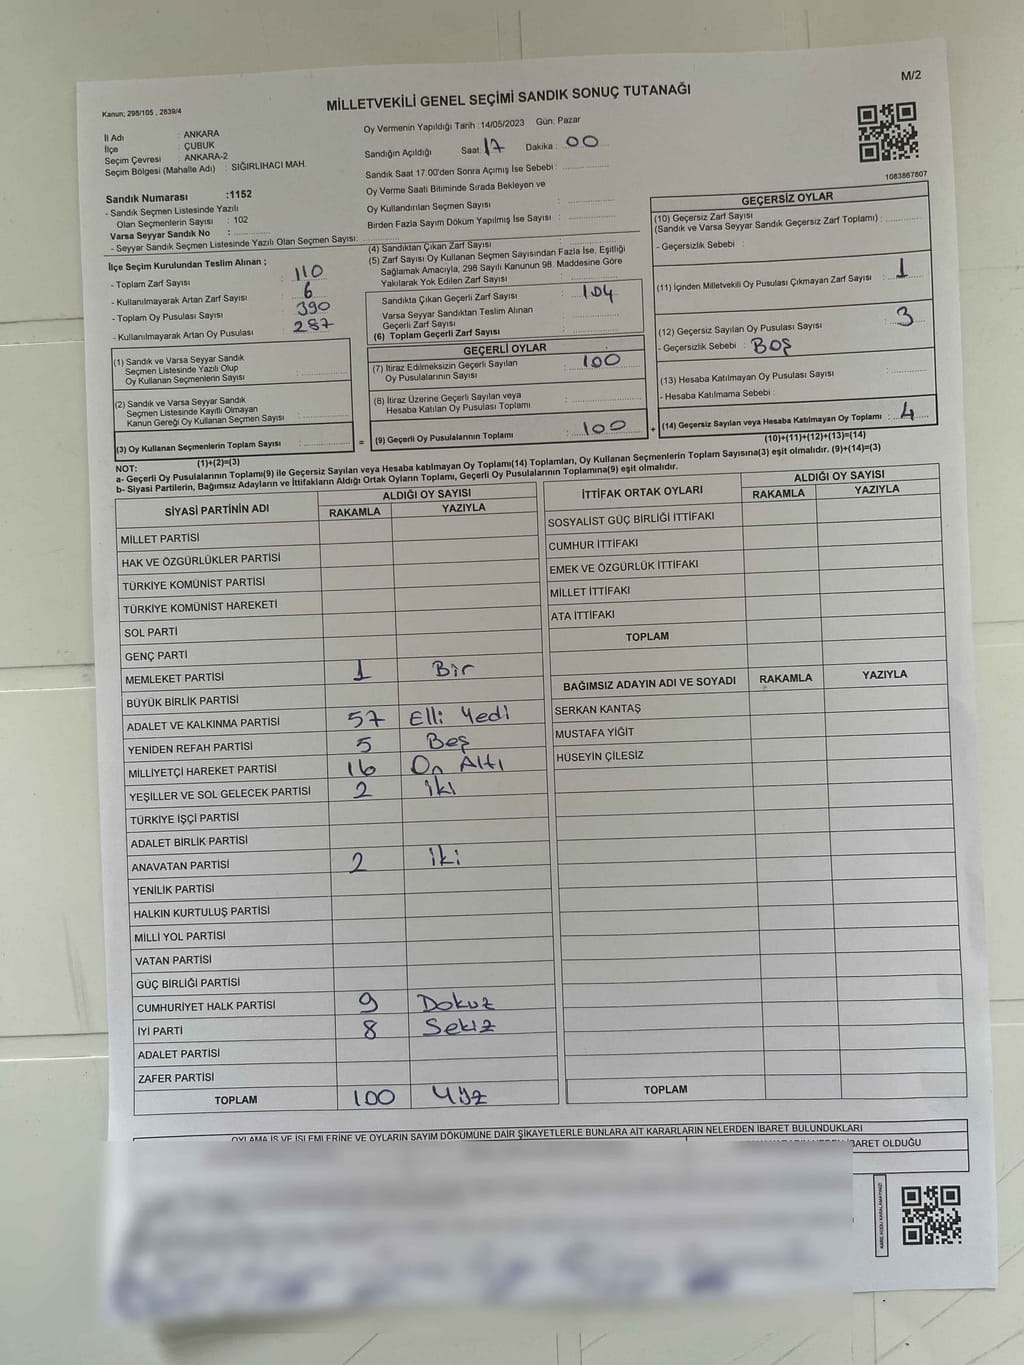 M/2
Kanun; 298/105 , 2839/4
MİLLETVEKİLİ GENEL SEÇİMİ SANDIK SONUÇ TUTANAĞI
İl Adı : ANKARA
İlçe : ÇUBUK
Seçim Çevresi : ANKARA-2
Seçim Bölgesi (Mahalle Adı) : SIĞIRLIHACI MAH.
Oy Vermenin Yapıldığı Tarih : 14/05/2023 Gün: Pazar
Sandığın Açıldığı Saat: 17 Dakika : 00
Sandık Saat 17.00'den Sonra Açımış İse Sebebi :
Oy Verme Saati Bitiminde Sırada Bekleyen ve
Oy Kullandırılan Seçmen Sayısı :
Birden Fazla Sayım Döküm Yapılmış İse Sayısı :
1083867807
Sandık Numarası :1152
- Sandık Seçmen Listesinde Yazılı
Olan Seçmenlerin Sayısı : 102
Varsa Seyyar Sandık No :
- Seyyar Sandık Seçmen Listesinde Yazılı Olan Seçmen Sayısı:
İlçe Seçim Kurulundan Teslim Alınan ;
- Toplam Zarf Sayısı : 110
- Kullanılmayarak Artan Zarf Sayısı : 6
- Toplam Oy Pusulası Sayısı : 390
- Kullanılmayarak Artan Oy Pusulası : 287
(1) Sandık ve Varsa Seyyar Sandık
Seçmen Listesinde Yazılı Olup
Oy Kullanan Seçmenlerin Sayısı :
(2) Sandık ve Varsa Seyyar Sandık
Seçmen Listesinde Kayıtlı Olmayan
Kanun Gereği Oy Kullanan Seçmen Sayısı :
(3) Oy Kullanan Seçmenlerin Toplam Sayısı :
(1)+(2)=(3)
(4) Sandıktan Çıkan Zarf Sayısı :
(5) Zarf Sayısı Oy Kullanan Seçmen Sayısından Fazla İse, Eşitliği
Sağlamak Amacıyla, 298 Sayılı Kanunun 98. Maddesine Göre
Yakılarak Yok Edilen Zarf Sayısı :
Sandıkta Çıkan Geçerli Zarf Sayısı : 104
Varsa Seyyar Sandıktan Teslim Alınan
Geçerli Zarf Sayısı :
(6) Toplam Geçerli Zarf Sayısı :
GEÇERLİ OYLAR
(7) İtiraz Edilmeksizin Geçerli Sayılan
Oy Pusulalarının Sayısı : 100
(8) İtiraz Üzerine Geçerli Sayılan veya
Hesaba Katılan Oy Pusulası Toplamı :
= (9) Geçerli Oy Pusulalarının Toplamı : 100 +
GEÇERSİZ OYLAR
(10) Geçersiz Zarf Sayısı
(Sandık ve Varsa Seyyar Sandık Geçersiz Zarf Toplamı) :
- Geçersizlik Sebebi :
(11) İçinden Milletvekili Oy Pusulası Çıkmayan Zarf Sayısı : 1
(12) Geçersiz Sayılan Oy Pusulası Sayısı : 3
- Geçersizlik Sebebi : BOŞ
(13) Hesaba Katılmayan Oy Pusulası Sayısı :
- Hesaba Katılmama Sebebi :
(14) Geçersiz Sayılan veya Hesaba Katılmayan Oy Toplamı : 4
(10)+(11)+(12)+(13)=(14)
NOT:
a- Geçerli Oy Pusulalarının Toplamı(9) ile Geçersiz Sayılan veya Hesaba katılmayan Oy Toplamı(14) Toplamları, Oy Kullanan Seçmenlerin Toplam Sayısına(3) eşit olmalıdır. (9)+(14)=(3)
b- Siyasi Partilerin, Bağımsız Adayların ve İttifakların Aldığı Ortak Oyların Toplamı, Geçerli Oy Pusulalarının Toplamına(9) eşit olmalıdır.
SİYASİ PARTİNİN ADI ALDIĞI OY SAYISI
RAKAMLA YAZIYLA
MİLLET PARTİSİ
HAK VE ÖZGÜRLÜKLER PARTİSİ
TÜRKİYE KOMÜNİST PARTİSİ
TÜRKİYE KOMÜNİST HAREKETİ
SOL PARTİ
GENÇ PARTİ
MEMLEKET PARTİSİ 1 Bir
BÜYÜK BİRLİK PARTİSİ
ADALET VE KALKINMA PARTİSİ 57 Elli Yedi
YENİDEN REFAH PARTİSİ 5 Beş
MİLLİYETÇİ HAREKET PARTİSİ 16 On Altı
YEŞİLLER VE SOL GELECEK PARTİSİ 2 iki
TÜRKİYE İŞÇİ PARTİSİ
ADALET BİRLİK PARTİSİ
ANAVATAN PARTİSİ 2 iki
YENİLİK PARTİSİ
HALKIN KURTULUŞ PARTİSİ
MİLLİ YOL PARTİSİ
VATAN PARTİSİ
GÜÇ BİRLİĞİ PARTİSİ
CUMHURİYET HALK PARTİSİ 9 Dokuz
İYİ PARTİ 8 Sekiz
ADALET PARTİSİ
ZAFER PARTİSİ
TOPLAM 100 Yüz
İTTİFAK ORTAK OYLARI ALDIĞI OY SAYISI
RAKAMLA YAZIYLA
SOSYALİST GÜÇ BİRLİĞİ İTTİFAKI
CUMHUR İTTİFAKI
EMEK VE ÖZGÜRLÜK İTTİFAKI
MİLLET İTTİFAKI
ATA İTTİFAKI
TOPLAM
BAĞIMSIZ ADAYIN ADI VE SOYADI RAKAMLA YAZIYLA
SERKAN KANTAŞ
MUSTAFA YİĞİT
HÜSEYİN ÇİLESİZ
TOPLAM
OYLAMA İŞ VE İŞLEMLERİNE VE OYLARIN SAYIM DÖKÜMÜNE DAİR ŞİKAYETLERLE BUNLARA AİT KARARLARIN NELERDEN İBARET BULUNDUKLARI
İBARET OLDUĞU